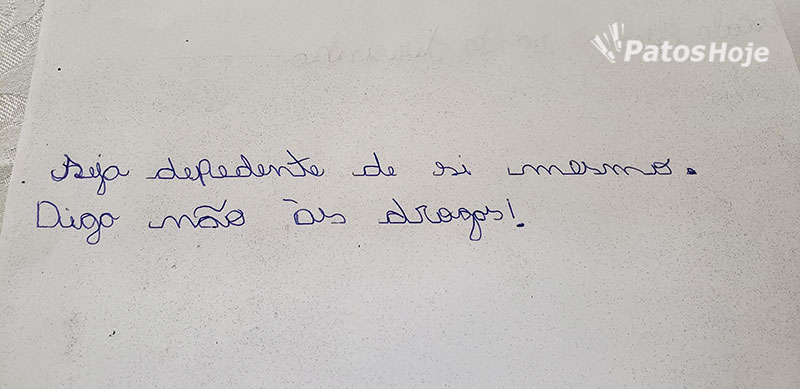 PatosHoje
Seja depedente de si mesmo.
Diga não às drogas!